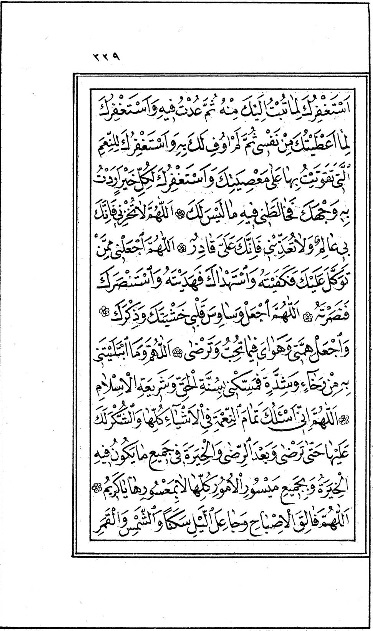 ٢٢٩
اَسْتَغْفِرُكَ لِمَا تُبْتُ اِلَيْكَ مِنْهُ ثُمَّ عُدْتُ فِيهِ وَاَسْتَغْفِرُكَ
لِمَا اَعْطَيْتُكَ مِنْ نَفْسِى ثُمَّ لَمْ اُوفِ لَكَ بِهِ وَاَسْتَغْفِرُكَ لِلنِّعَمِ
الَّتِى تَقَوَّيْتُ بِهَا عَلَى مَعْصِيَتِكَ وَاَسْتَغْفِرُكَ لِكُلِّ خَيْرٍ اَرَدْتُ
بِهِ وَجْهَكَ فَخَالَطَنِى فِيهِ مَا لَيْسَ لَكَ ۞ اَللّٰهُمَّ لَا تُخْزِنِى فَاِنَّكَ
بِى عَالِمٌ وَلَا تُعَذِّبْنِى فَاِنَّكَ عَلَىَّ قَادِرٌ ۞ اَللّٰهُمَّ اجْعَلْنِى مِمَّنْ
تَوَكَّلَ عَلَيْكَ فَكَفَيْتَهُ وَاسْتَهْدَاكَ فَهَدَيْتَهُ وَاسْتَنْصَرَكَ
فَنَصَرْتَهُ ۞ اَللّٰهُمَّ اجْعَلْ وَسَاوِسَ قَلْبِى خَشْيَتَكَ وَذِكْرَكَ ۞
وَاجْعَلْ هِمَّتِى وَهَوَاىَ فِيمَا تُحِبُّ وَتَرْضَى ۞ اَللّٰهُمَّ وَمَا ابْتَلَيْتَنِى
بِهِ مِنْ رَخَاءٍ وَشِدَّةٍ فَمَسِّكْنِى بِسُنَّةِ الْحَقِّ وَشَرِيعَةِ الْاِسْلَامِ
۞ اَللّٰهُمَّ اِنِّى اَسْئَلُكَ تَمَامَ النِّعْمَةِ فِى الْاَشْيَاءِ كُلِّهَا وَالشُّكْرَ لَكَ
عَلَيْهَا حَتَّى تَرْضَى وَبَعْدَ الرِّضَى وَالْخِيَرَةَ فِى جَمِيعِ مَا يَكُونُ فِيهِ
الْخِيَرَةُ وَبِجَمِيعِ مَيْسُورِ الْاُمُورِ كُلِّهَا لَا بِمَعْسُورِهَا يَا كَرِيمُ ۞
اَللّٰهُمَّ فَالِقَ الْاِصْبَاحِ وَجَاعِلَ اللَّيْلِ سَكَنًا وَالشَّمْسِ وَالْقَمَرِ